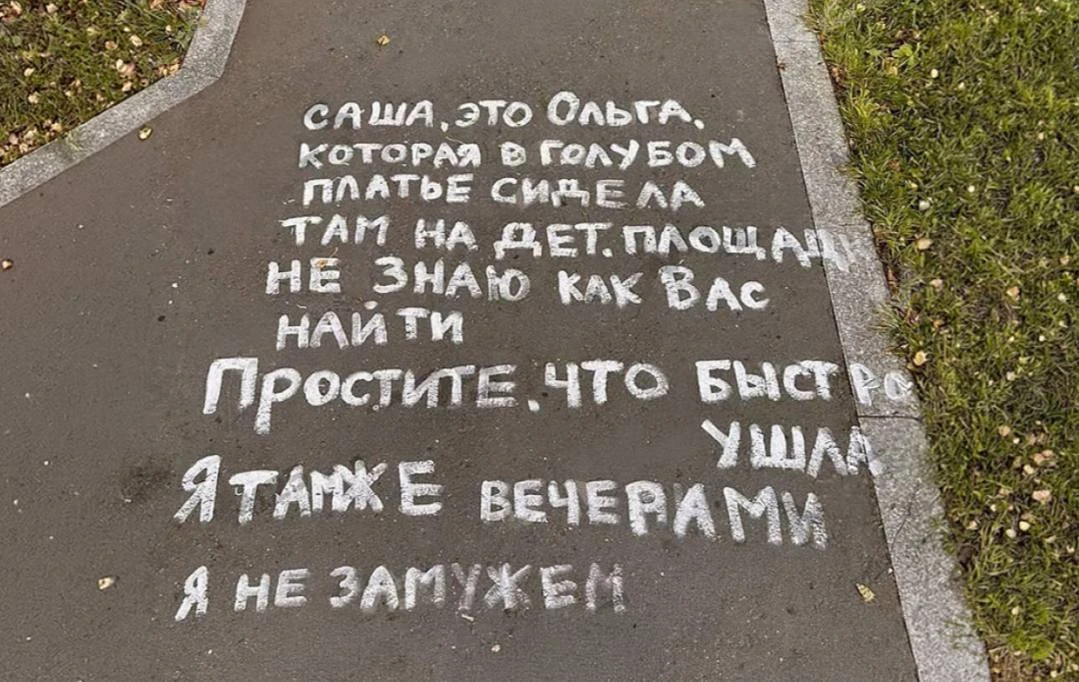 САША, ЭТО ОЛЬГА,
КОТОРАЯ В ГОЛУБОМ
ПЛАТЬЕ СИДЕЛА
ТАМ НА ДЕТ. ПЛОЩАДИ
НЕ ЗНАЮ КАК ВАС
НАЙТИ
ПРОСТИТЕ, ЧТО БЫСТРО
УШЛА
Я ТАМЖЕ ВЕЧЕРАМИ
Я НЕ ЗАМУЖЕМ